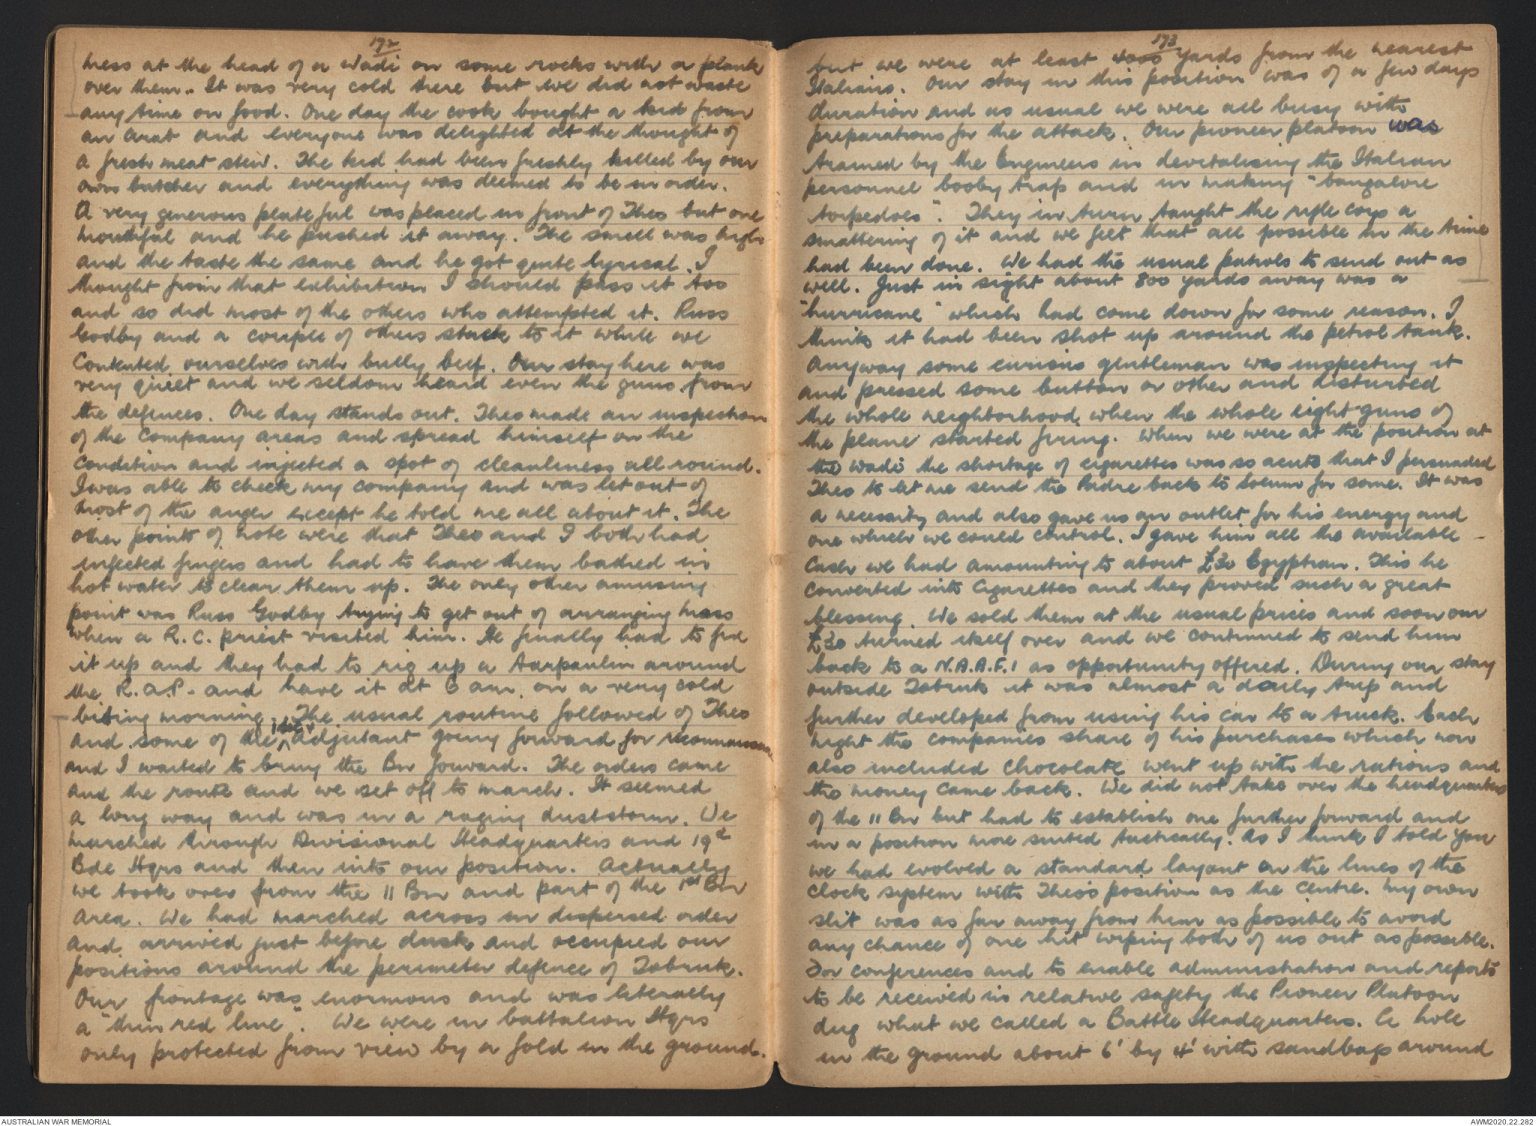 172
mess at the head of a Wadi on some rocks with a plank
over them. It was very cold there but we did not waste
any time on food. One day the cook bought a kid from
an arab and everyone was delighted at the thought of
a fresh meat stew. The kid had been freshly killed by our
own butcher and everything was deemed to be in order.
A very generous plateful was placed in front of Theo but one
mouthful and he pushed it away. The smell was high
and the taste the same and he got quite lyrical. I
thought from that exhibition I should pass it too
and so did most of the others who attempted it. Russ
Godby and a couple of others stuck to it while we
contented ourselves with bully beef. Our stay here was
very quiet and we seldom heard even the guns from
the defences. One day stands out. Theo made an inspection
of the company areas and spread himself on the
condition and injected a spot of cleanliness all round.
I was able to check my company and was let out of
most of the anger except he told me all about it. The
other points of note were that Theo and I both had
infected fingers and had to have them bathed in
hot water to clear them up. The only other amusing
point was Russ Godby trying to get out of arranging mass
when a R.C. priest visited him. He finally had to fix
it up and they had to rig up a tarpaulin around
the R.a.P. and have it at 6 am. on a very cold
biting morning. The usual routine followed of Theo
and some of the adjutant going forward for reconnaissance
and I waited to bring the Bn forward. The orders came
and the route and we set off to march. It seemed
a long way and was in a raging duststorm. We
marched through Divisional Headquarters and 19th
Bde Hqrs and then into our position. Actually
we took over from the 11 Bn and part of the 1st Bn
area. We had marched across in dispersed order
and arrived just before dusk and occupied our
positions around the perimeter defence of Tobruk.
Our frontage was enormous and was literally
a "thin red line". We were in battalion Hqrs
only protected from view by a fold in the ground.
173
but we were at least 4000 yards from the nearest
Italians. Our stay in this position was of a few days
duration and as usual we were all busy with
preparations for the attack. Our pioneer platoon was
trained by the Engineers in devitalising the Italian
personnel booby trap and in making "bangalore
torpedoes". They in turn taught the rifle coys a
smattering of it and we felt that all possible in the time
had been done. We had the usual patrols to send out as
well. Just in sight about 800 yards away was a
"hurricane" which had come down for some reason. I
think it had been shot up around the petrol tank.
Anyway some curious gentleman was inspecting it
and pressed some button or other and disturbed
the whole neighborhood when the whole eight guns of
the plane started firing. When we were at the position at
the wadi the shortage of cigarettes was so acute that I persuaded
Theo to let me send the Padre back to Solum for some. It was
a necessity and also gave us an outlet for his energy and
one which we could control. I gave him all the available
cash we had amounting to about £30 Egyptian. This he
converted into cigarettes and they proved such a great
blessing. We sold them at the usual prices and soon our
£30 turned itself over and we continued to send him
back to a N.A.A.F.I as opportunity offered. During our stay
outside Tobruk it was almost a daily trip and
further developed from using his car to a truck. Each
night the companies share of his purchases which now
also included chocolate went up with the rations and
the money came back. We did not take over the headquarters
of the 11 Bn but had to establish one further forward and
in a position more suited tactically. As I think I told you
we had evolved a standard layout on the lines of the
clock system with Theo's position as the centre. My own
slit was as far away from him as possible to avoid
any chance of one hit wiping both of us out as possible.
For conferences and to enable administration and reports
to be received in relative safety the Pioneer Platoon
dug what we called a Battle Headquarters. A hole
in the ground about 6' by 4' with sandbags around
AUSTRALIAN WAR MEMORIAL
AWM2020.22.282